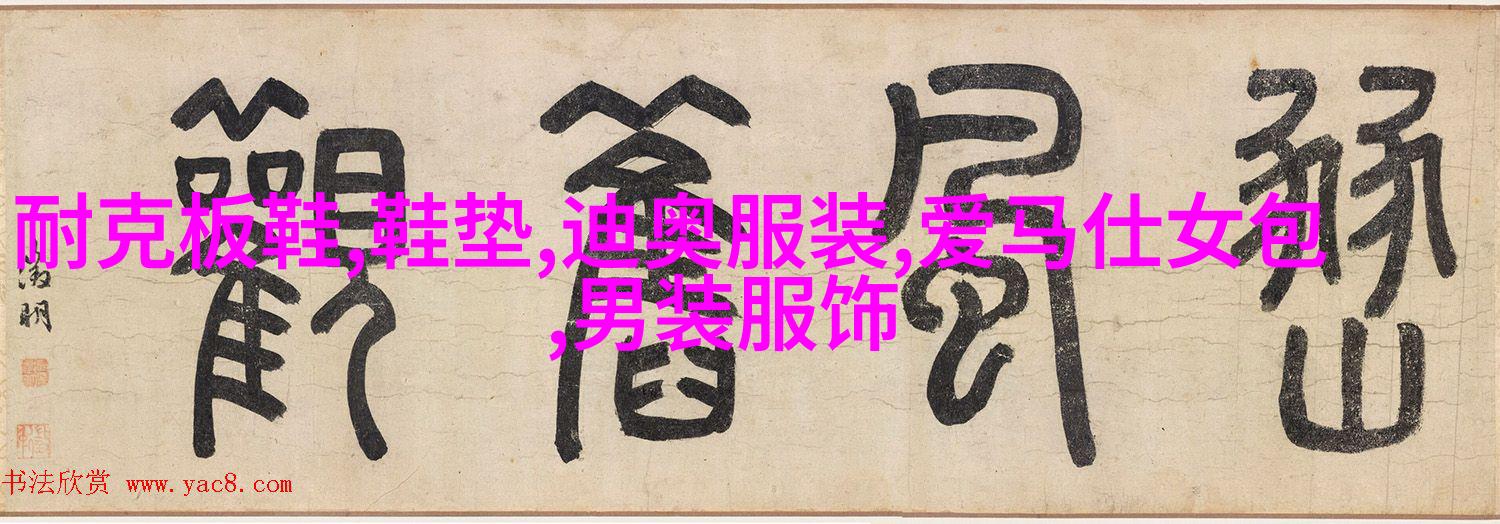 豳風舊觀
徵明
耐克板鞋,鞋垫,迪奥服装,爱马仕女包
,男装服饰
书法欣赏 www.yac8.com